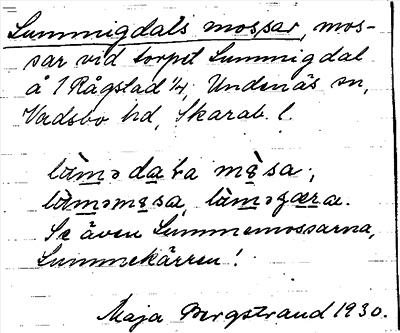 Lummigdals mossar, mos-
sar vid torpet Lummigdal
å 1 Rågstad 1/4, Undenäs sn,
Vadsbo hd, Skarab. l.
Se även Lummemossarna,
Lummekärren!
Maja Bergstrand 1930.